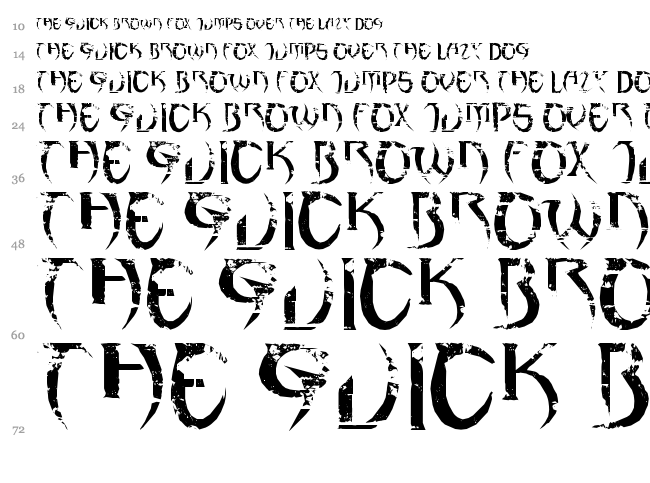 10 THE QUICK BROWN FOX JUMPS OVER THE LAZY DOG
14 THE QUICK BROWN FOX JUMPS OVER THE LAZY DOG
18 THE QUICK BROWN FOX JUMPS OVER THE LAZY DO
24 THE QUICK BROWN FOX JUMPS OVER
36 THE QUICK BROWN FOX
48 THE QUICK BROWN
60 THE QUICK BRO
72 THE QUICK B